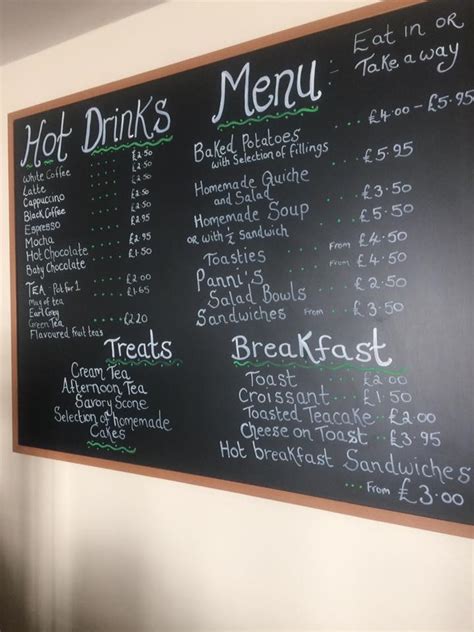 Hot Drinks
White Coffee .... £2.50
Latte .... £2.50
Cappuccino .... £2.50
Black Coffee .... £2.50
Espresso .... £2.50
Mocha .... £2.95
Hot Chocolate .... £2.95
Baby Chocolate .... £1.50
TEA Pot for 1 .... £2.00
Mug of tea .... £1.65
Earl Grey
Green Tea
Flavoured fruit teas .... £2.20
Treats
Cream Tea
Afternoon Tea
Savory Scone
Selection of homemade
Cakes
Menu : Eat in OR
Take a way
Baked Potatoes ... £4.00 - £5.95
with Selection of fillings
Homemade Quiche ... £5.95
and Salad
Homemade Soup ... £3.50
OR with ½ Sandwich ... £5.50
Toasties From £4.50
Panni's From £4.50
Salad Bowls
Sandwiches .. From £3.50
Breakfast
Toast .... £2.00
Croissant .... £1.50
Toasted Teacake .. £2.00
Cheese on Toast .. £3.95
Hot breakfast Sandwiches
... From £3.00